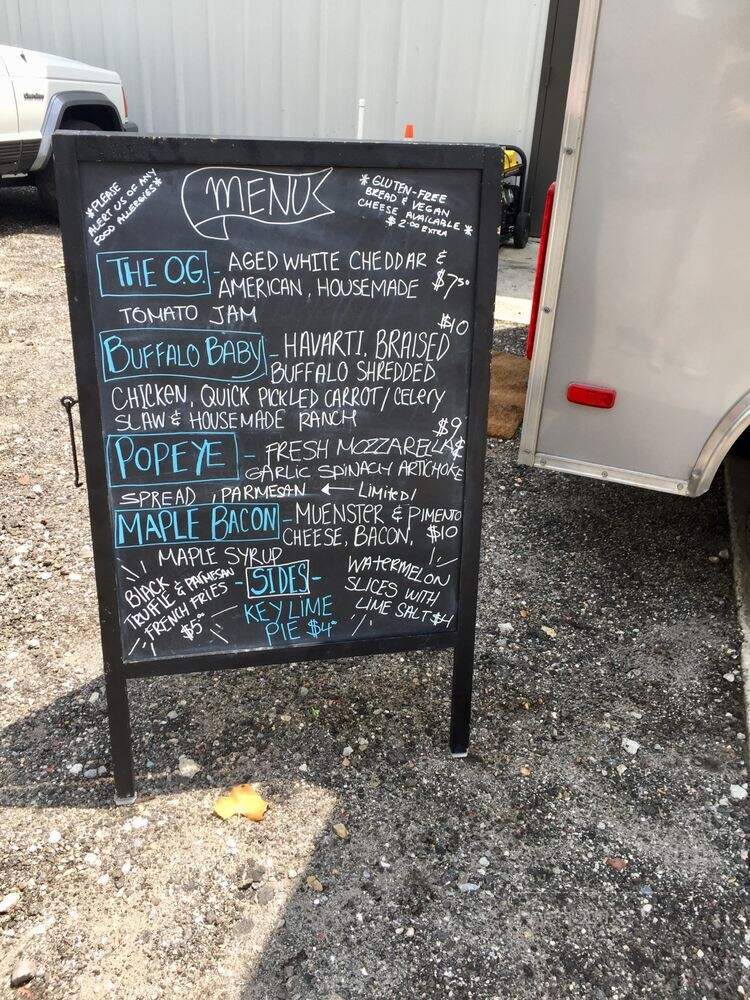 *PLEASE
ALERT US OF ANY
FOOD ALLERGIES*
MENU
* GLUTEN-FREE
BREAD & VEGAN
CHEESE AVAILABLE *
$2.00 EXTRA
THE O.G. - AGED WHITE CHEDDAR &
AMERICAN, HOUSEMADE $7.50
TOMATO JAM
$10
BUFFALO BABY - HAVARTI, BRAISED
BUFFALO SHREDDED
CHICKEN, QUICK PICKLED CARROT/CELERY
SLAW & HOUSEMADE RANCH
$9
POPEYE - FRESH MOZZARELLA &
GARLIC SPINACH ARTICHOKE
SPREAD, PARMESAN ← LIMITED!
MAPLE BACON - MUENSTER & PIMENTO
CHEESE, BACON, $10
MAPLE SYRUP
BLACK
TRUFFLE & PARMESAN
FRENCH FRIES -
$5.00
SIDES -
KEY LIME
PIE $4.00
WATERMELON
SLICES WITH
LIME SALT $4